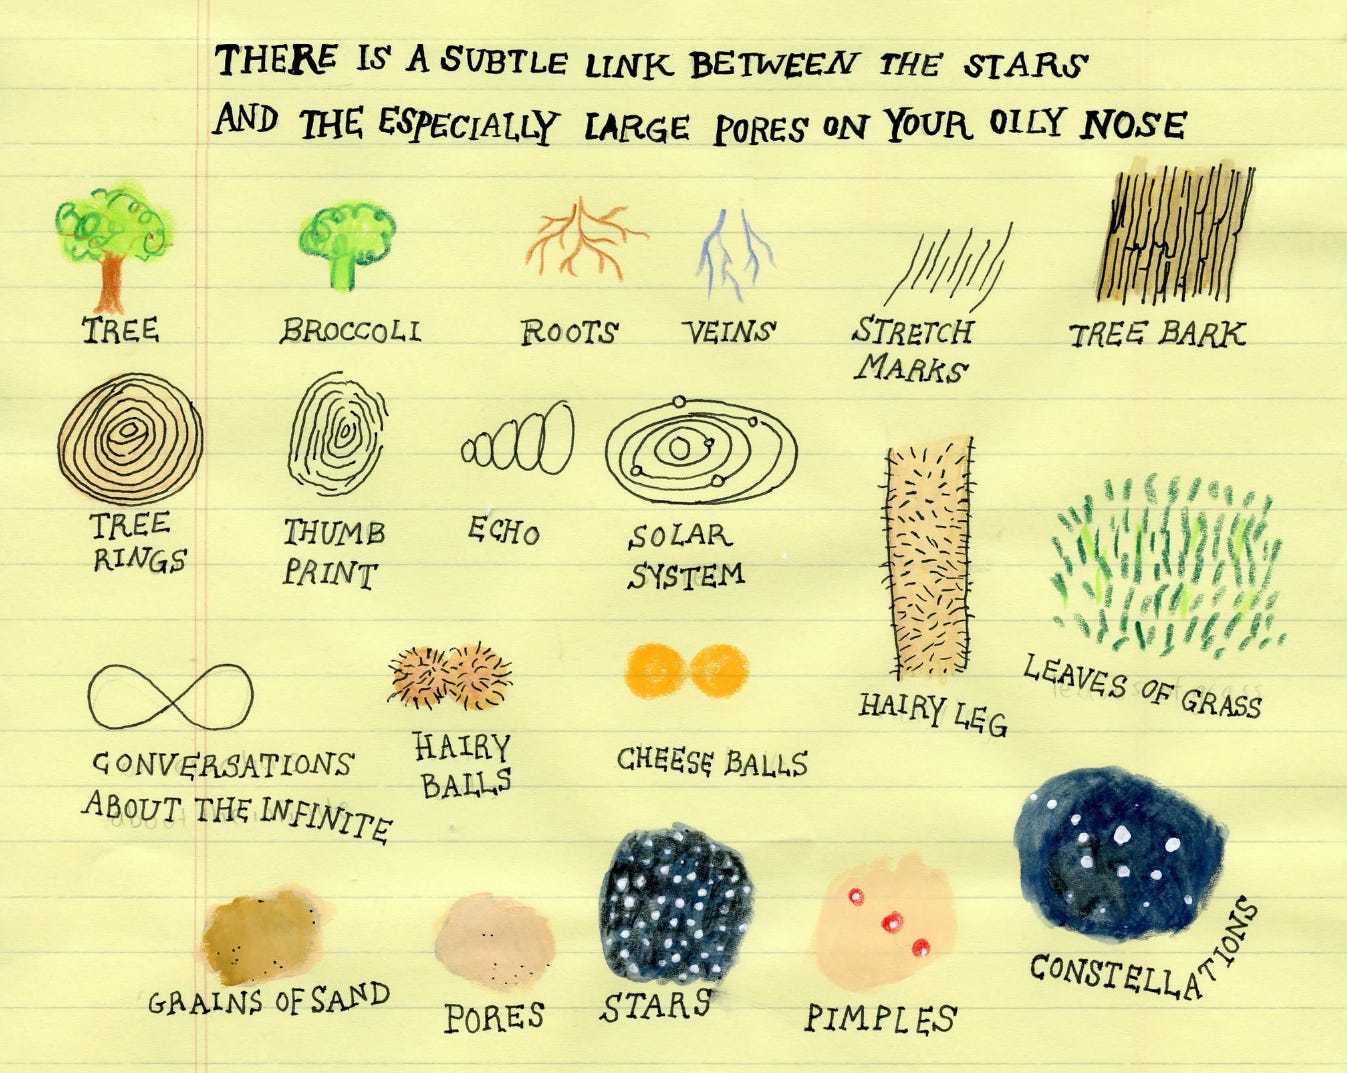 THERE IS A SUBTLE LINK BETWEEN THE STARS
AND THE ESPECIALLY LARGE PORES ON YOUR OILY NOSE
TREE
BROCCOLI
ROOTS
VEINS
STRETCH
MARKS
TREE BARK
TREE
RINGS
THUMB
PRINT
ECHO
SOLAR
SYSTEM
HAIRY LEG
LEAVES OF GRASS
CONVERSATIONS
ABOUT THE INFINITE
HAIRY
BALLS
CHEESE BALLS
GRAINS OF SAND
PORES
STARS
PIMPLES
CONSTELLATIONS